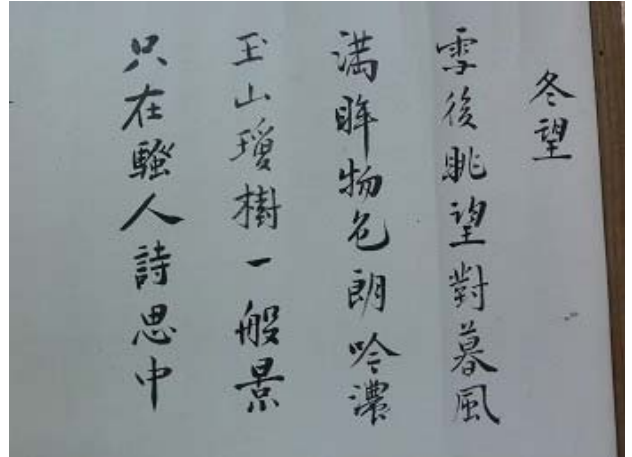 冬望
雪後眺望對暮風
満眸物色朗吟濃
玉山瓊樹一般景
只在騷人詩思中